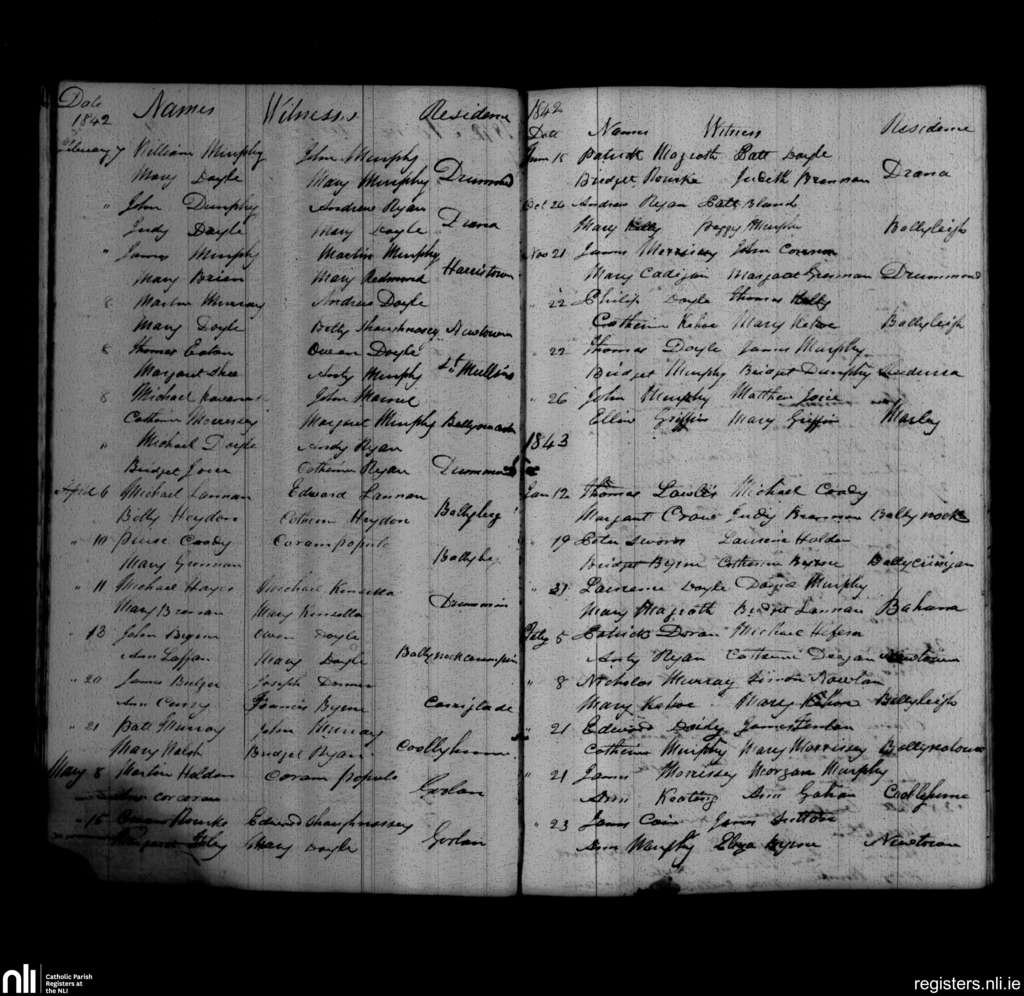 Date
1842 Names Witnesses Residence
February 7 William Murphy John Murphy
Mary Doyle Mary Murphy Drummond
" John Dunphy Andrew Ryan
Judy Doyle Mary Doyle Drana
" James Murphy Martin Murphy
Mary Brien Mary Redmond Harristown
8 Martin Murray Andrew Doyle
Mary Doyle Betty Shaughnessy Newtown
8 Thomas Eaton Owen Doyle
Margaret Shee Andy Murphy St Mullins
8 Michael John
Catherine Morrissey Margaret Murphy
" Michael Doyle Andy Ryan
Bridget Joice Catherine Ryan Drummond
April 6 Michael Lannan Edward Lannan
Betty Heydon Catherin Heydon
" 10 Pierse Coady Coram populo
Mary Grennan
" 11 Michael Hayes Michael Kinsella
Mary Brennan Mary Kinsella Drummin
" 13 John Byrne Owen Doyle
Ann Laffan Mary Doyle
" 20 James Bulger Joseph
Ann Francis Byrne
" 21 Patt Murray John Murray
Mary Walsh Bridget Ryan
May 8 Martin Holden Coram populo
Ann Corcoran Gorlan
" 15 Rourke Edward Shaughnessy
Margaret Mary Doyle Gorlan
1842
Date Names Witness Residence
June 15 Patrick Magrath Patt Doyle
Bridget Rourke Judith Brennan Drana
Oct 26 Andrew Ryan Patt Bland
Mary Kelly Peggy Murphy Ballyleigh
Nov 21 James Morrissey John Connor
Mary Cadigan Margaret Grennan Drummond
" 22 Philip Doyle Thomas Kelly
Catherine Kehoe Mary Kehoe Ballyleigh
" 22 Thomas Doyle James Murphy
Bridget Murphy Bridget Dunphy
" 26 John Murphy Matthew Joice
Ellin Griffin Mary Griffin Marley
1843
Jan 12 Thomas Lawler Michael Coady
Margaret Crowe Judy Brennan Ballynock
" 19 Peter Swords Laurence Holden
Bridget Byrne Catherine Byrne Ballycrinigan
" 21 Laurence Doyle David Murphy
Mary Magrath Bridget Lannan Bahana
Feby 5 Patrick Doran Michael
Andy Ryan Catherine Newtown
" 8 Nicholas Murray Simon Nowlan
Mary Kehoe Mary Kehoe Ballyleigh
" 21 Edward James
Catherine Murphy Mary Morrissey
" 21 James Morrissey Morgan Murphy
Ann Keating Ann
" 23 James Cain James Sutton
Ann Murphy Eliza Byrne Newtown
nli Catholic Parish
Registers at
the NLI
registers.nli.ie